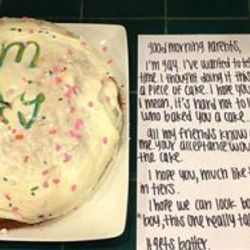 m
ay
good morning parents,
I'm gay. I've wanted to tell
time. I thought doing it thi
a piece of cake. I hope you
i mean, it's hard not to
who baked you a cake.
all my friends know
me your acceptance would
the cake.
I hope you, much like t
in tiers.
I hope we can look ba
"boy, this one really ta
It gets batter.